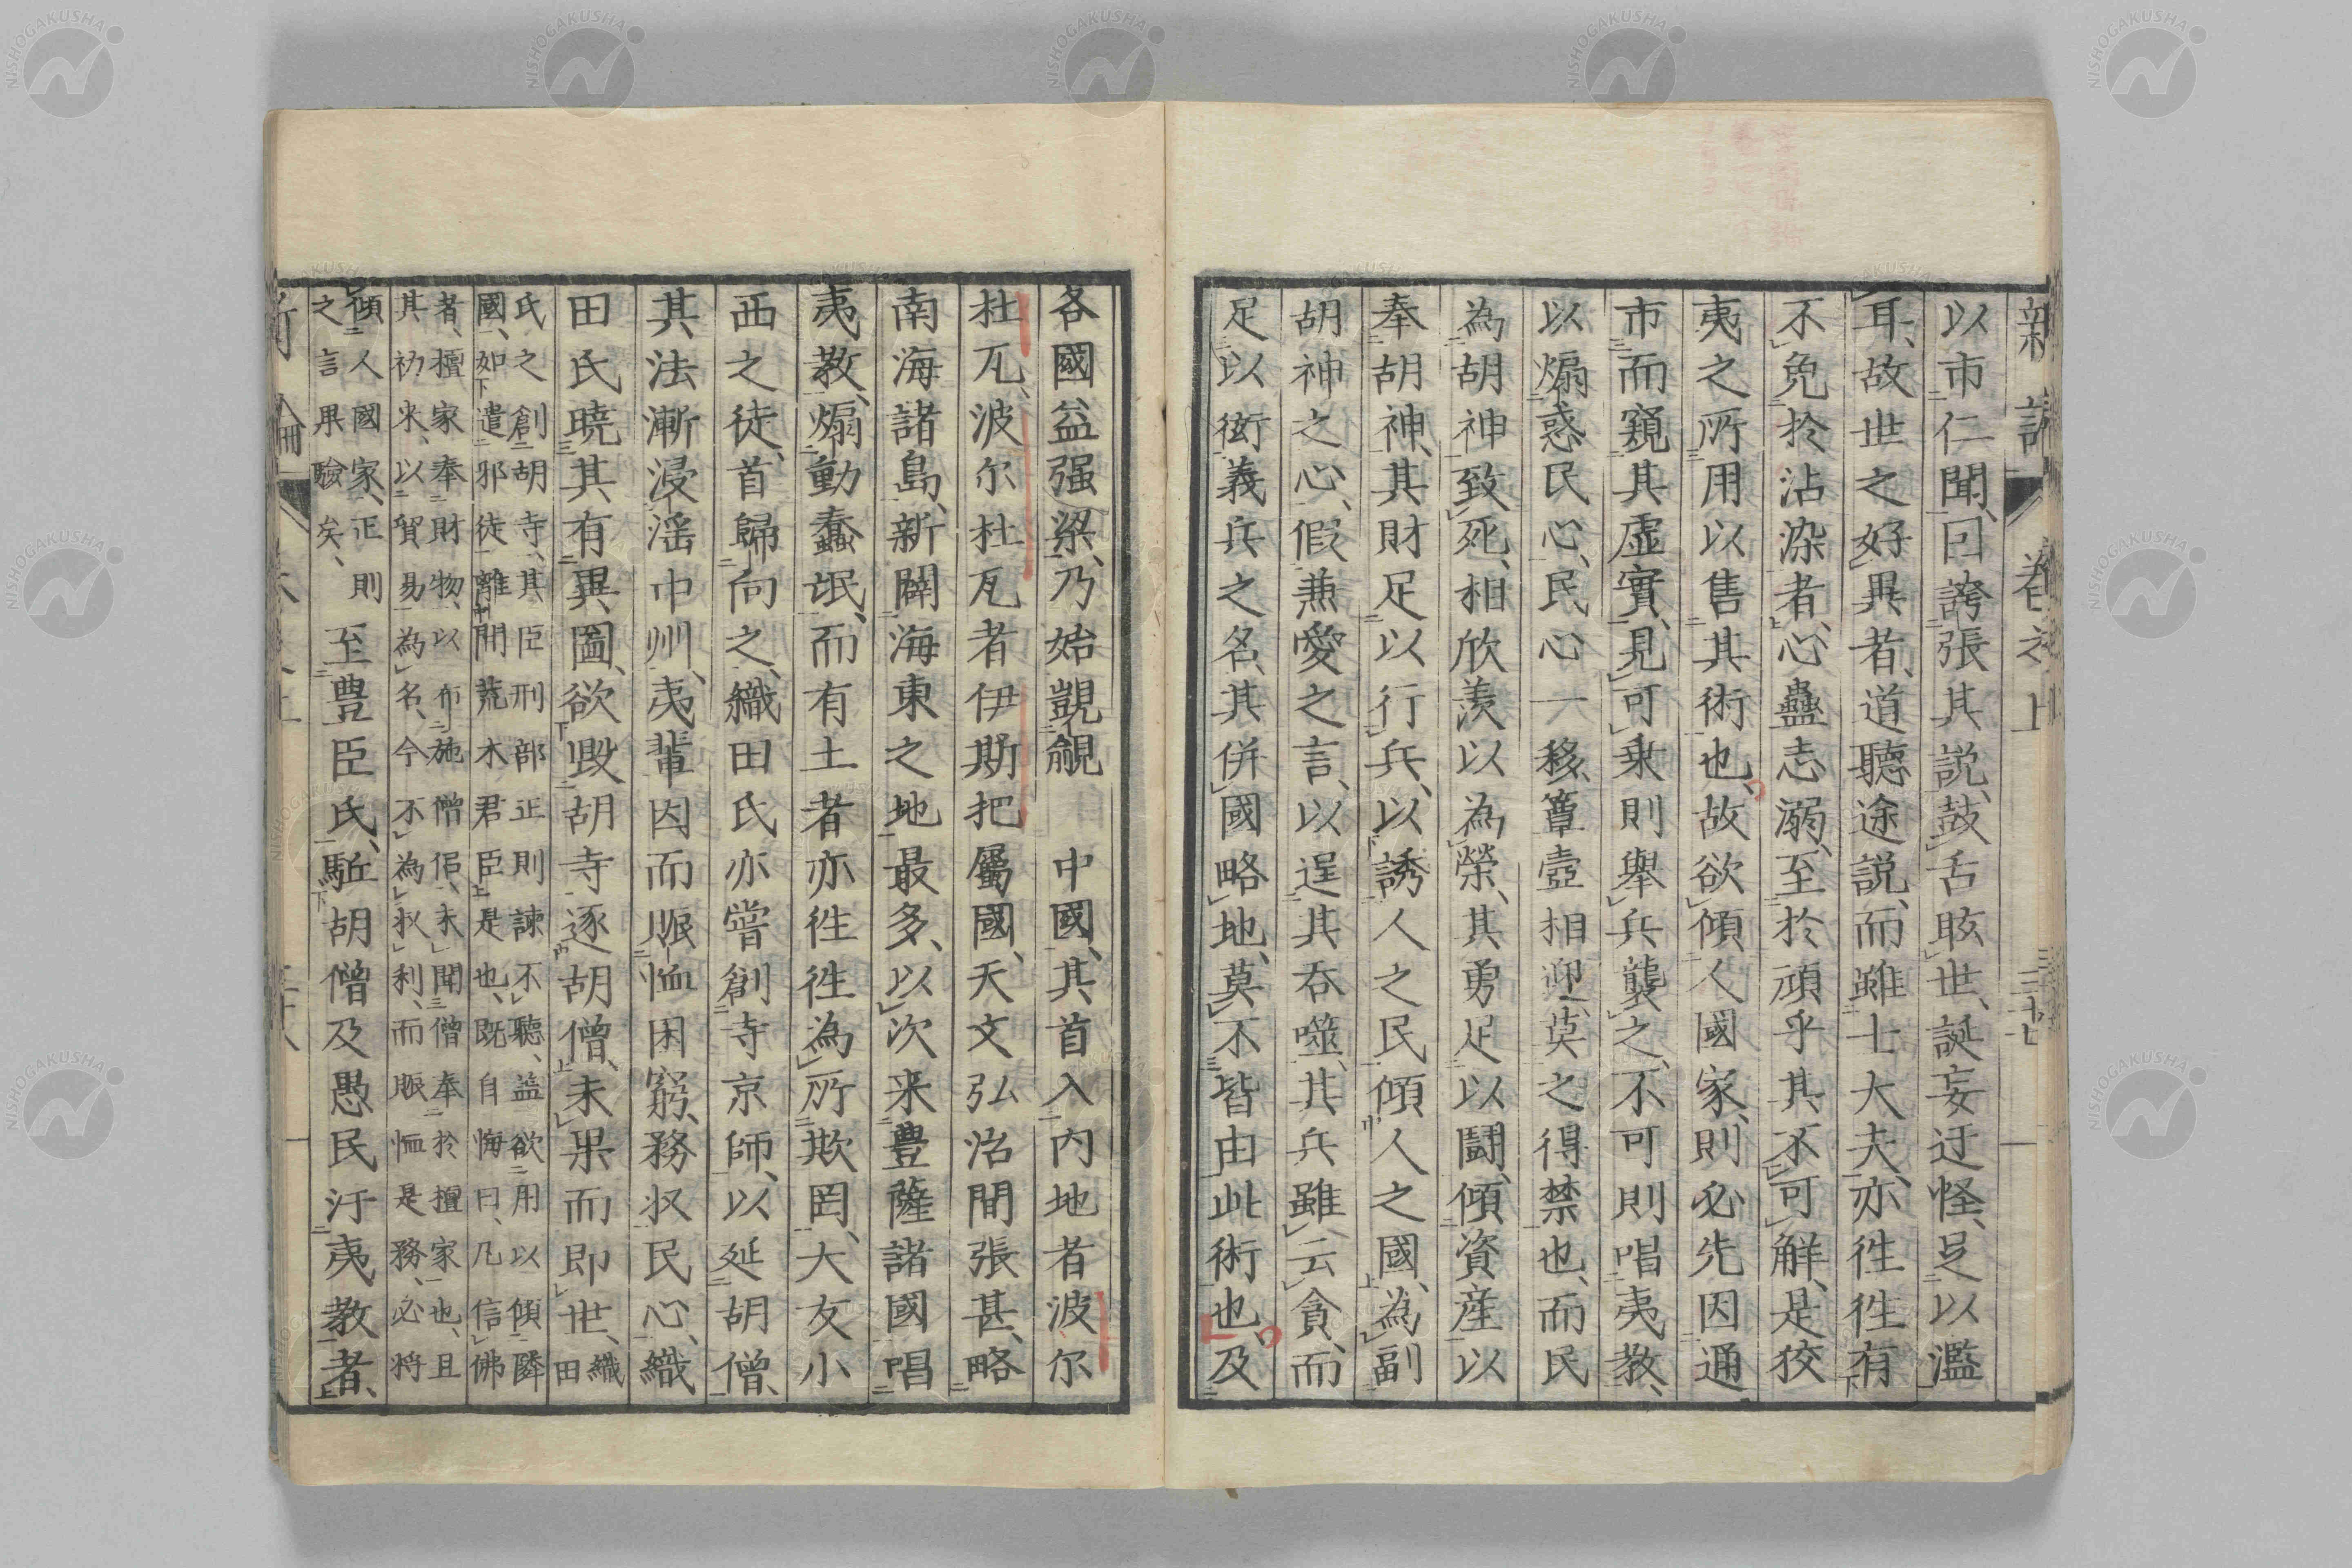 新論 卷之上 三十七
以市仁聞、囙誇張其説、鼓舌眩世、誕妄迂怪、足以濫
耳、故世之好異者、道聽途説、而雖士大夫、亦徃徃有
不免於沾染者、心蠱志溺、至於頑乎其不可解、是狡
夷之所用以售其術也、故欲傾人國家、則必先因通
市而窺其虛實、見可乗則舉兵襲之、不可則唱夷教、
以煽惑民心、民心一移、簞壺相迎、莫之得禁也、而民
為胡神致死、相欣羨以為榮、其勇足以鬪、傾資産以
奉胡神、其財足以行兵、以誘人之民傾人之國、為副
胡神之心、假兼愛之言、以逞其吞噬、其兵雖云貪、而
足以衒義兵之名、其併國略地、莫不皆由此術也、及
各國益强梁、乃始覬覦 中國、其首入内地者波尔
杜瓦、波尔杜瓦者伊斯把屬國、天文弘治間張甚、略
南海諸島、新闢海東之地最多、以次来豊薩諸國唱
夷教、煽動蠢氓、而有土者亦徃徃為所欺罔、大友小
西之徒、首歸向之、織田氏亦嘗創寺京師、以延胡僧、
其法漸浸淫中州、夷輩因而賑恤困窮、務収民心、織
田氏曉其有異圖、欲毀胡寺逐胡僧、未果而即世、織田
氏之創胡寺、其臣刑部正則諫不聽、盖欲用以傾隣
國、如遣邪徒離間荒木君臣是也、既自悔曰、凡信佛
者、檀家奉財物、以布施僧侶、未聞僧奉於檀家也、且
其礽来、以貿易為名、今不為収利、而賑恤是務、必将
傾人國家、正則
之言果驗矣、
至豊臣氏、駈胡僧及愚民汙夷教者、
新論 卷之上 三十八